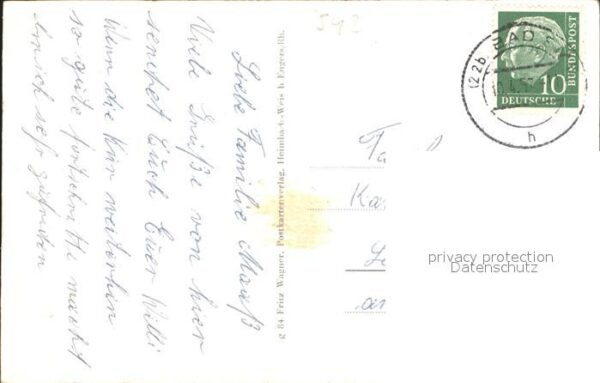 Liebe Familie Maaß
Viele Grüße von hier
sendet Euch Euer Willi
Wenn die Kur weiterhin
so gute Fortschritte macht
bin ich sehr zufrieden
g 84 Fritz Wagner, Postkartenverlag, Heimbach-Weis b Engers/Rh.
592
(22b) BAD
h
10
DEUTSCHE
BUNDESPOST
Fa
Ka
an
privacy protection
Datenschutz